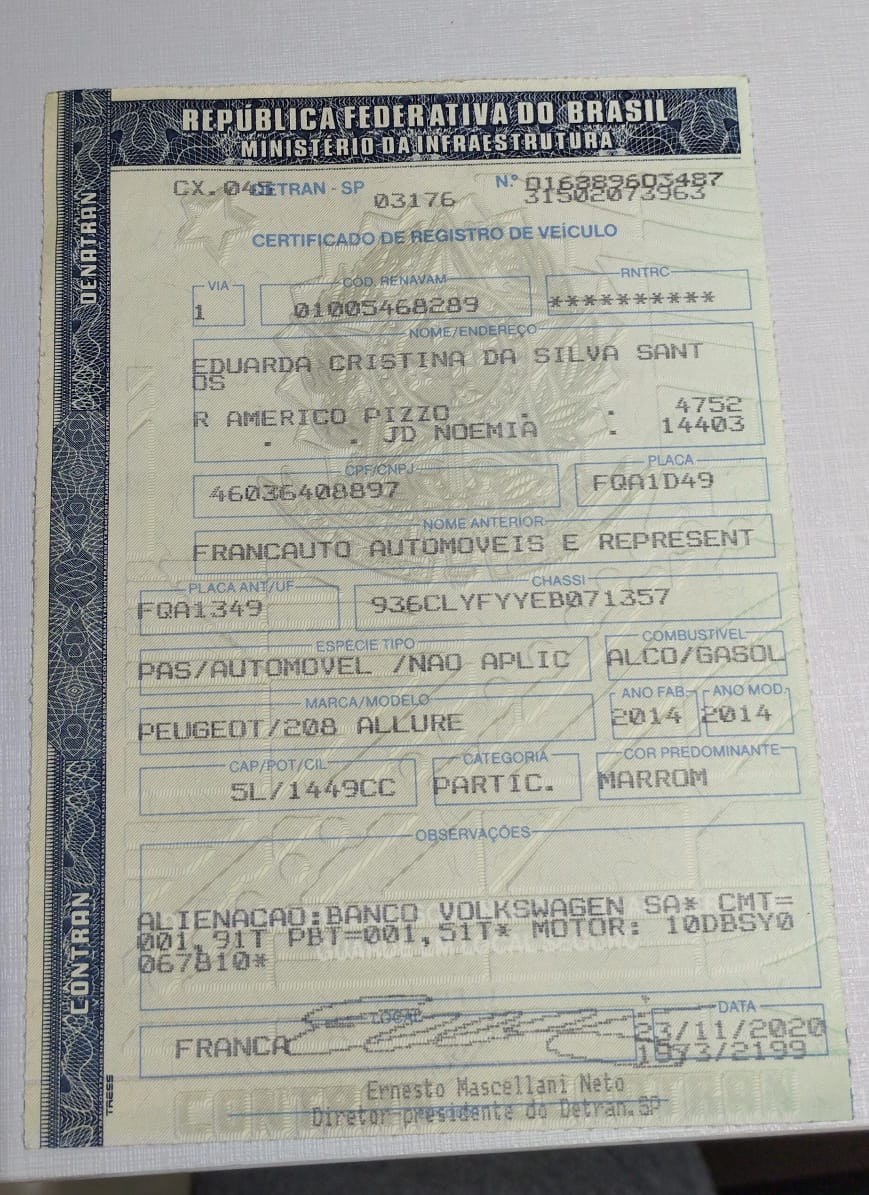 REPÚBLICA FEDERATIVA DO BRASIL
MINISTÉRIO DA INFRAESTRUTURA
DENATRAN
CONTRAN
CX. 045 DETRAN - SP 03176 N.º 016389603487
31502073963
CERTIFICADO DE REGISTRO DE VEÍCULO
VIA CÓD. RENAVAM RNTRC
1 01005468289 **********
NOME/ENDEREÇO
EDUARDA CRISTINA DA SILVA SANT
OS
R AMERICO PIZZO . . 4752
. . JD NOEMIA . 14403
CPF/CNPJ PLACA
46036408897 FQA1D49
NOME ANTERIOR
FRANCAUTO AUTOMOVEIS E REPRESENT
PLACA ANT/UF CHASSI
FQA1349 936CLYFYYEB071357
ESPÉCIE TIPO COMBUSTÍVEL
PAS/AUTOMOVEL /NAO APLIC ALCO/GASOL
MARCA/MODELO ANO FAB. ANO MOD.
PEUGEOT/208 ALLURE 2014 2014
CAP/POT/CIL CATEGORIA COR PREDOMINANTE
5L/1449CC PARTIC. MARROM
OBSERVAÇÕES
ALIENACAO:BANCO VOLKSWAGEN SA* CMT=
001,91T PBT=001,51T* MOTOR: 10DBSY0
067810*
LOCAL DATA
FRANCA 23/11/2020
1973/2199
Ernesto Mascellani Neto
Diretor-presidente do Detran.SP
TRESS